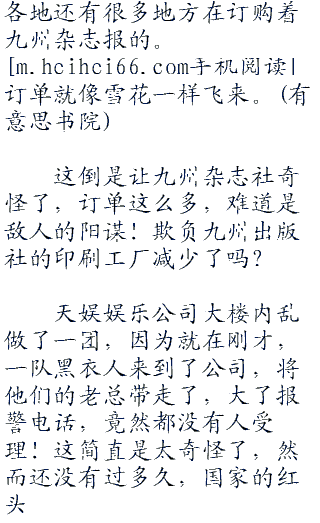 各地还有很多地方在订购着
九州杂志报的。
[m.hcihci66.com手机阅读|
订单就像雪花一样飞来。(有
意思书院)
这倒是让九州杂志社奇
怪了，订单这么多，难道是
敌人的阳谋！欺负九州出版
社的印刷工厂减少了吗？
天娱娱乐公司大楼内乱
做了一团，因为就在刚才，
一队黑衣人来到了公司，将
他们的老总带走了，大了报
警电话，竟然都没有人受
理！这简直是太奇怪了，然
而还没有过多久，国家的红
头